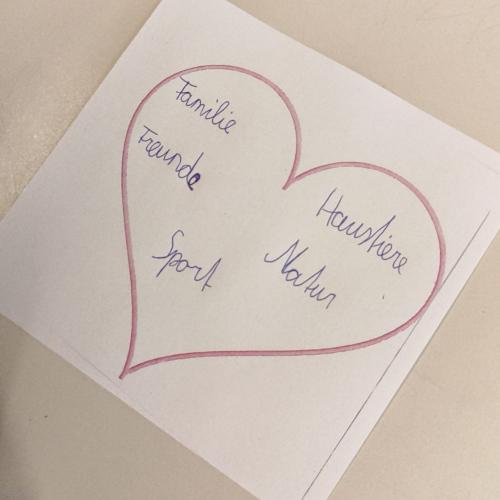 Familie
Freunde
Haustiere
Sport
Natur